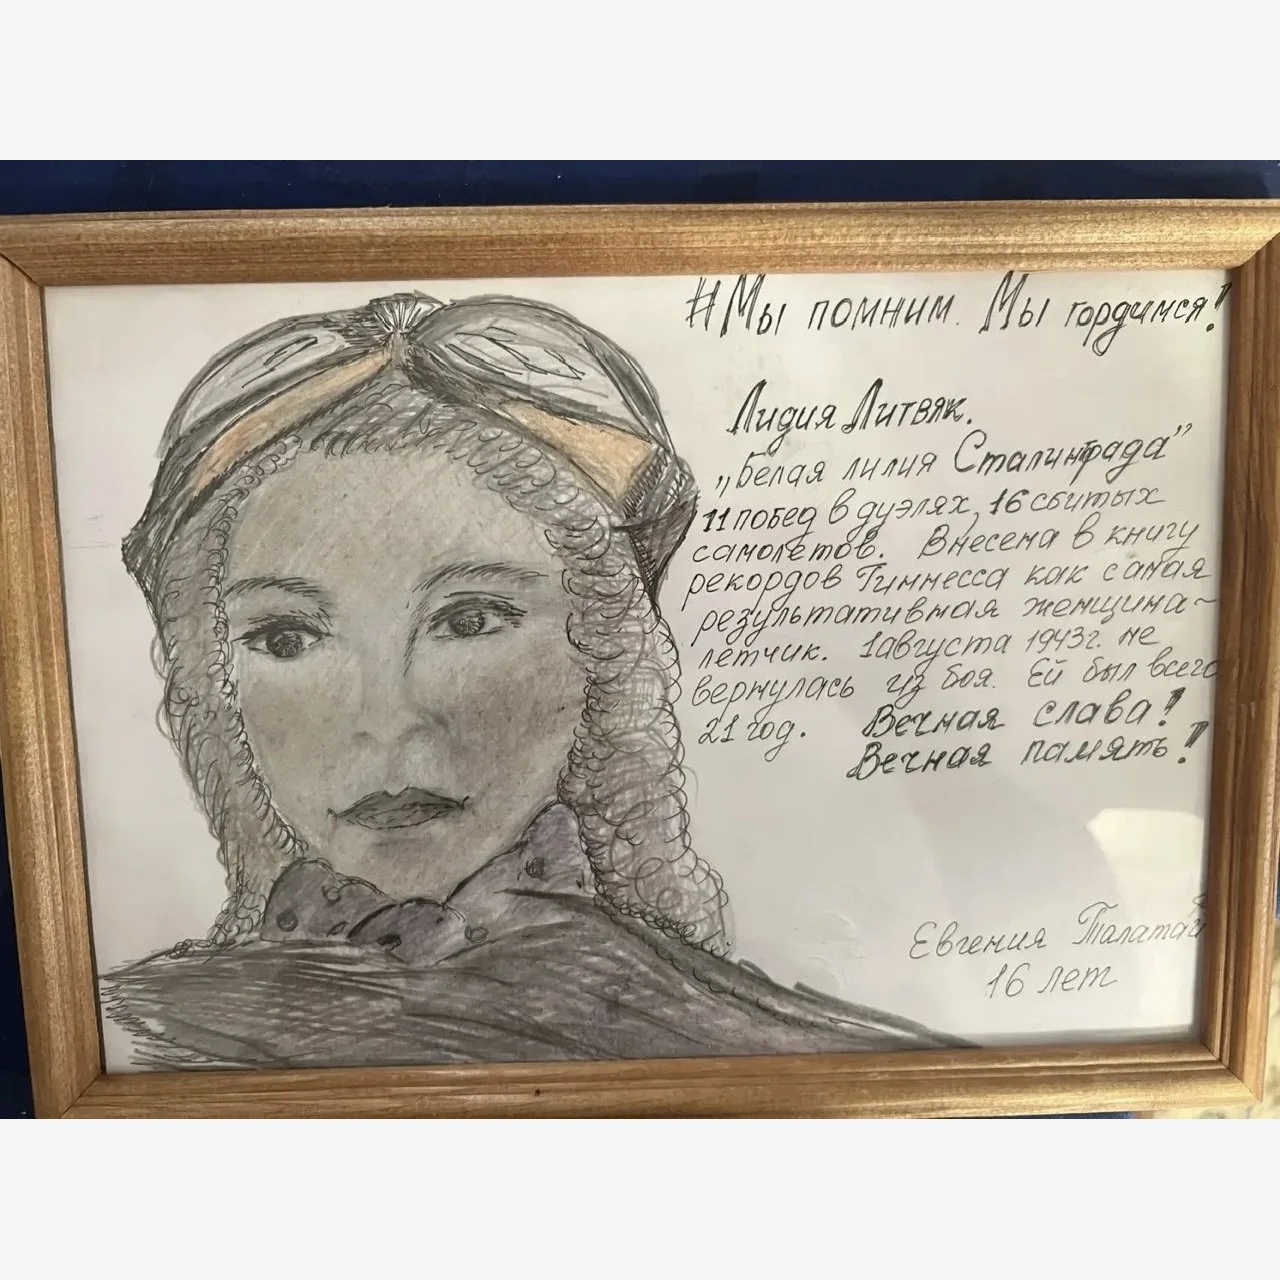 #Мы помним. Мы гордимся!
Лидия Литвяк.
„Белая лилия Сталинграда”
11 побед в дуэлях, 16 сбитых
самолетов. Внесена в книгу
рекордов Гиннесса как самая
результативная женщина-
летчик. 1 августа 1943 г. не
вернулась из боя. Ей был всего
21 год. Вечная слава!
Вечная память!
Евгения Талатай
16 лет